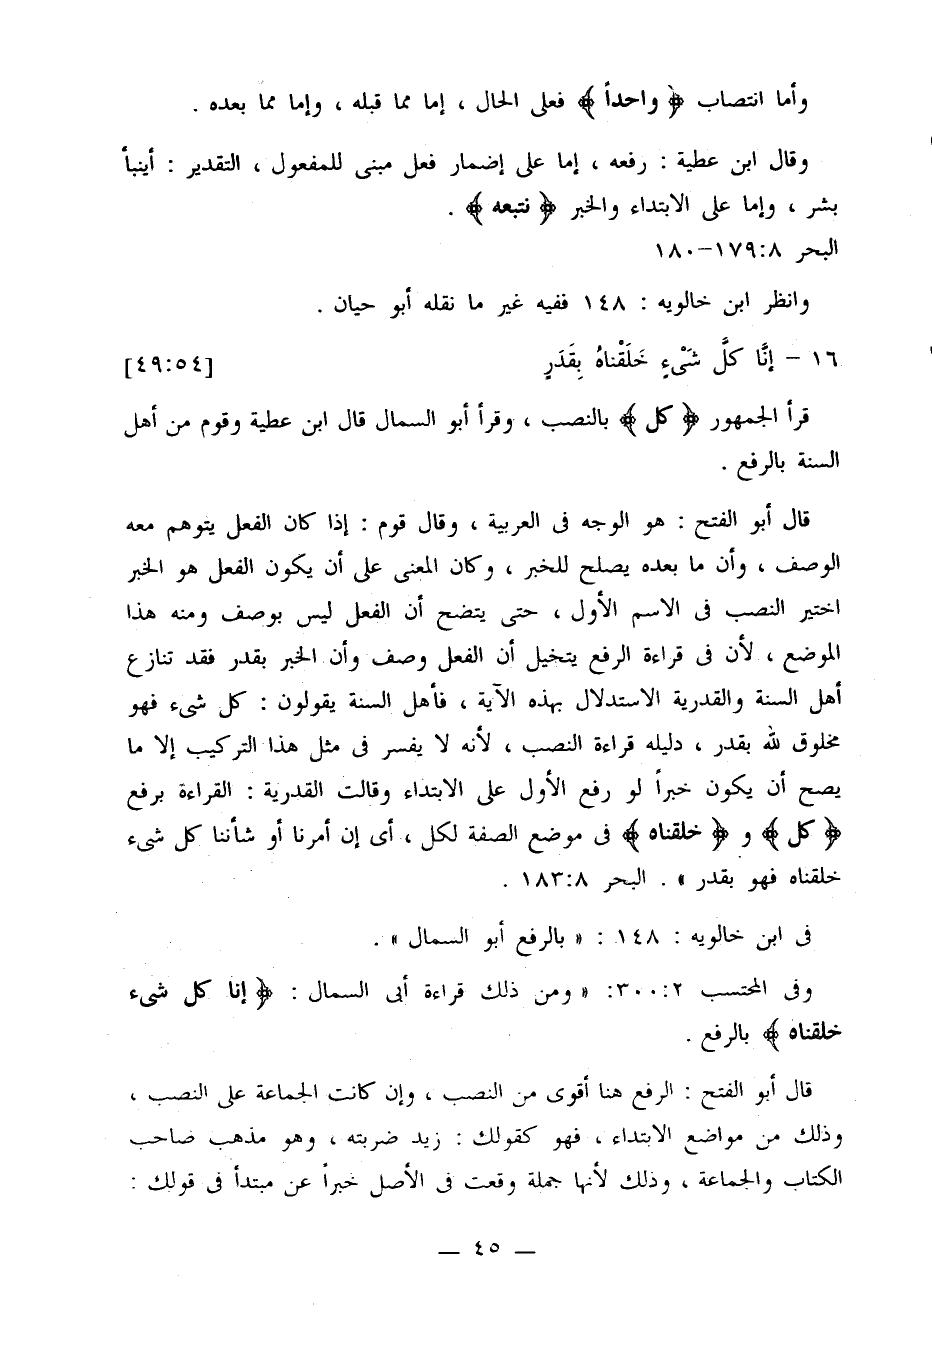 وأما انتصاب ﴿ واحداً ﴾ فعلى الحال ، إما مما قبله ، وإما مما بعده .
وقال ابن عطية : رفعه ، إما على إضمار فعل مبنى للمفعول ، التقدير : أينبأ
بشر ، وإما على الابتداء والخبر ﴿ نتبعه ﴾ .
البحر ١٧٩:٨–١٨٠
وانظر ابن خالويه : ١٤٨ ففيه غير ما نقله أبو حيان .
١٦ – إِنَّا كلَّ شَىْءٍ خَلَقْناهُ بِقَدَرٍ [٤٩:٥٤]
قرأ الجمهور ﴿ كل ﴾ بالنصب ، وقرأ أبو السمال قال ابن عطية وقوم من أهل
السنة بالرفع .
قال أبو الفتح : هو الوجه فى العربية ، وقال قوم : إذا كان الفعل يتوهم معه
الوصف ، وأن ما بعده يصلح للخبر ، وكان المعنى على أن يكون الفعل هو الخبر
اختير النصب فى الاسم الأول ، حتى يتضح أن الفعل ليس بوصف ومنه هذا
الموضع ، لأن فى قراءة الرفع يتخيل أن الفعل وصف وأن الخبر بقدر فقد تنازع
أهل السنة والقدرية الاستدلال بهذه الآية ، فأهل السنة يقولون : كل شىء فهو
مخلوق لله بقدر ، دليله قراءة النصب ، لأنه لا يفسر فى مثل هذا التركيب إلا ما
يصح أن يكون خبراً لو رفع الأول على الابتداء وقالت القدرية : القراءة برفع
﴿ كل ﴾ و ﴿ خلقناه ﴾ فى موضع الصفة لكل ، أى إن أمرنا أو شأننا كل شىء
خلقناه فهو بقدر » . البحر ١٨٣:٨ .
فى ابن خالويه : ١٤٨ : « بالرفع أبو السمال » .
وفى المحتسب ٣٠٠:٢: « ومن ذلك قراءة أبى السمال : ﴿ إنا كل شىء
خلقناه ﴾ بالرفع .
قال أبو الفتح : الرفع هنا أقوى من النصب ، وإن كانت الجماعة على النصب ،
وذلك من مواضع الابتداء ، فهو كقولك : زيد ضربته ، وهو مذهب صاحب
الكتاب والجماعة ، وذلك لأنها جملة وقعت فى الأصل خبراً عن مبتدأ فى قولك :
— ٤٥ —